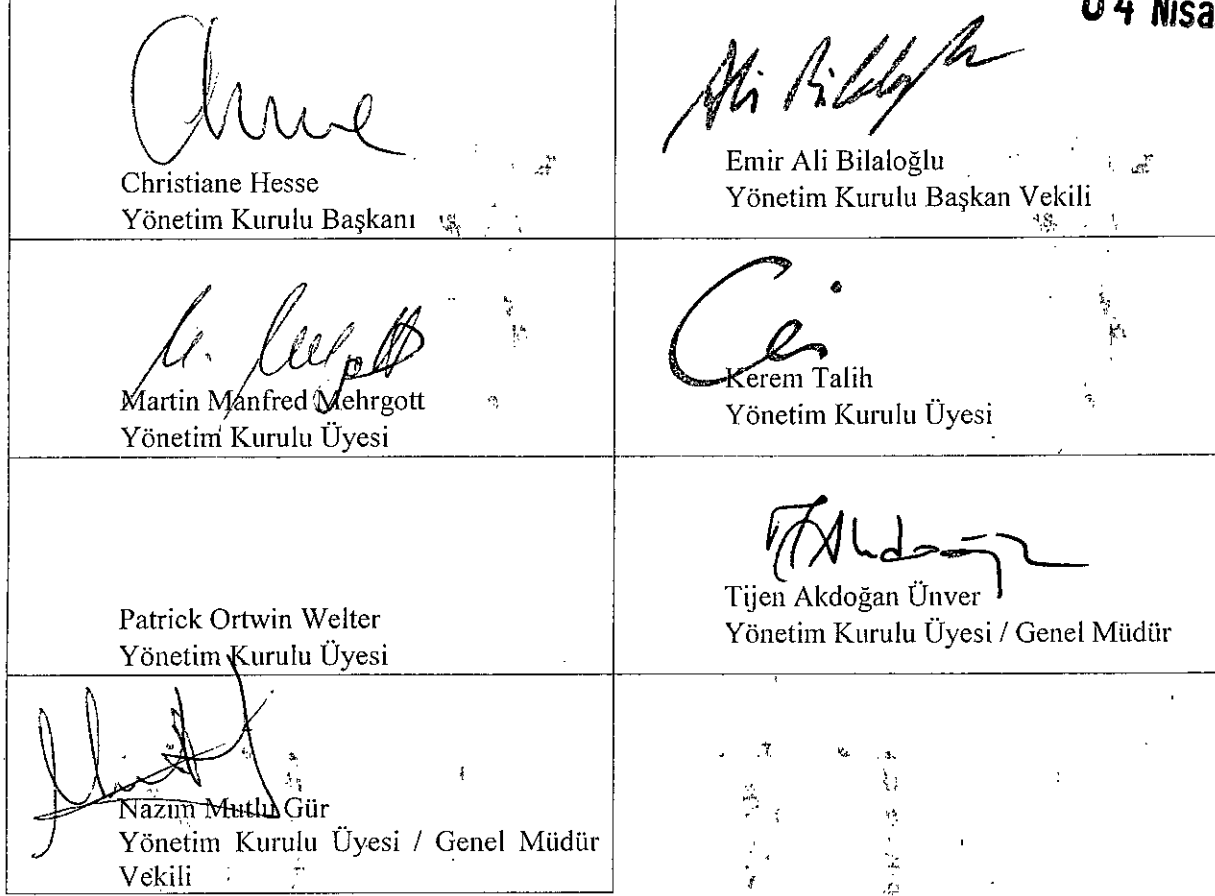 04 Nisa
Christiane Hesse
Yönetim Kurulu Başkanı
Ali Bilaloğlu
Emir Ali Bilaloğlu
Yönetim Kurulu Başkan Vekili
Martin Manfred Mehrgott
Yönetim Kurulu Üyesi
Kerem Talih
Yönetim Kurulu Üyesi
Patrick Ortwin Welter
Yönetim Kurulu Üyesi
Tijen Akdoğan Ünver
Yönetim Kurulu Üyesi / Genel Müdür
Nazım Mutlu Gür
Yönetim Kurulu Üyesi / Genel Müdür
Vekili